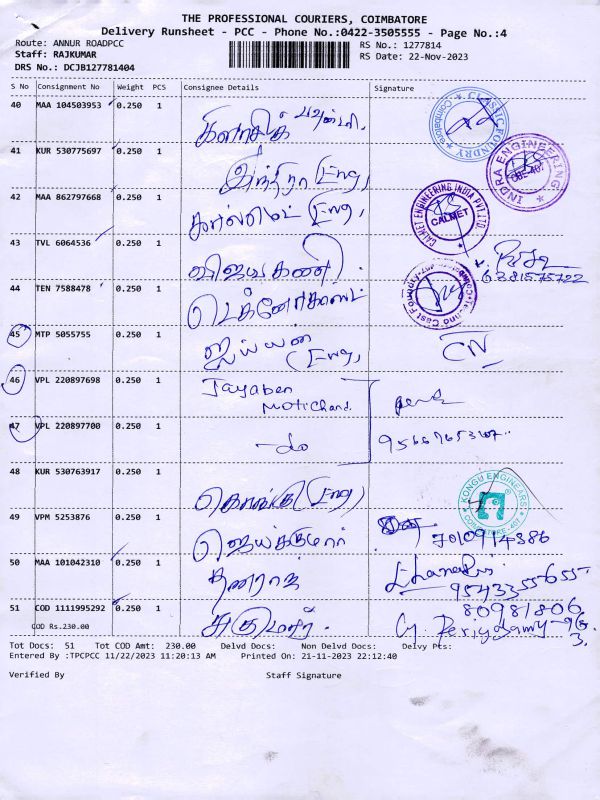 THE PROFESSIONAL COURIERS, COIMBATORE
Delivery Runsheet - PCC - Phone No.:0422-3505555 - Page No.:4
Route: ANNUR ROADPCC RS No.: 1277814
Staff: RAJKUMAR RS Date: 22-Nov-2023
DRS No.: DCJB127781404
S No Consignment No Weight PCS Consignee Details Signature
40 MAA 104503953 0.250 1 கிளாசிக் பவுண்டரி,
CLASSIC FOUNDRY Coimbatore
41 KUR 530775697 0.250 1 இந்திரா Eng,
INDRA ENGINEERING
42 MAA 862797668 0.250 1 கால்மெட் Eng,
CALMET ENGINEERING INDIA PVT LTD. CALMET
43 TVL 6064536 0.250 1 விஜயகணி
6381575722
44 TEN 7588478 0.250 1 டெக்னோகாஸ்ட்
Techno Cast Foundry
45 MTP 5055755 0.250 1 ஐய்யன் Eng,
46 VPL 220897698 0.250 1 Jayaben Motichand
47 VPL 220897700 0.250 1 -do
48 KUR 530763917 0.250 1 கொங்கு Eng,
KONGU ENGINEARS COIMBATORE
49 VPM 5253876 0.250 1 ஜெய்க்குமார்
7010914386
50 MAA 101042310 0.250 1 தனராஜ்
9543355655
51 COD 1111995292 0.250 1 சுகுமாரி
80981806
COD Rs.230.00
Tot Docs: 51 Tot COD Amt: 230.00 Delvd Docs: Non Delvd Docs: Delvy Pts:
Entered By :TPCPCC 11/22/2023 11:20:13 AM Printed On: 21-11-2023 22:12:40
Verified By Staff Signature